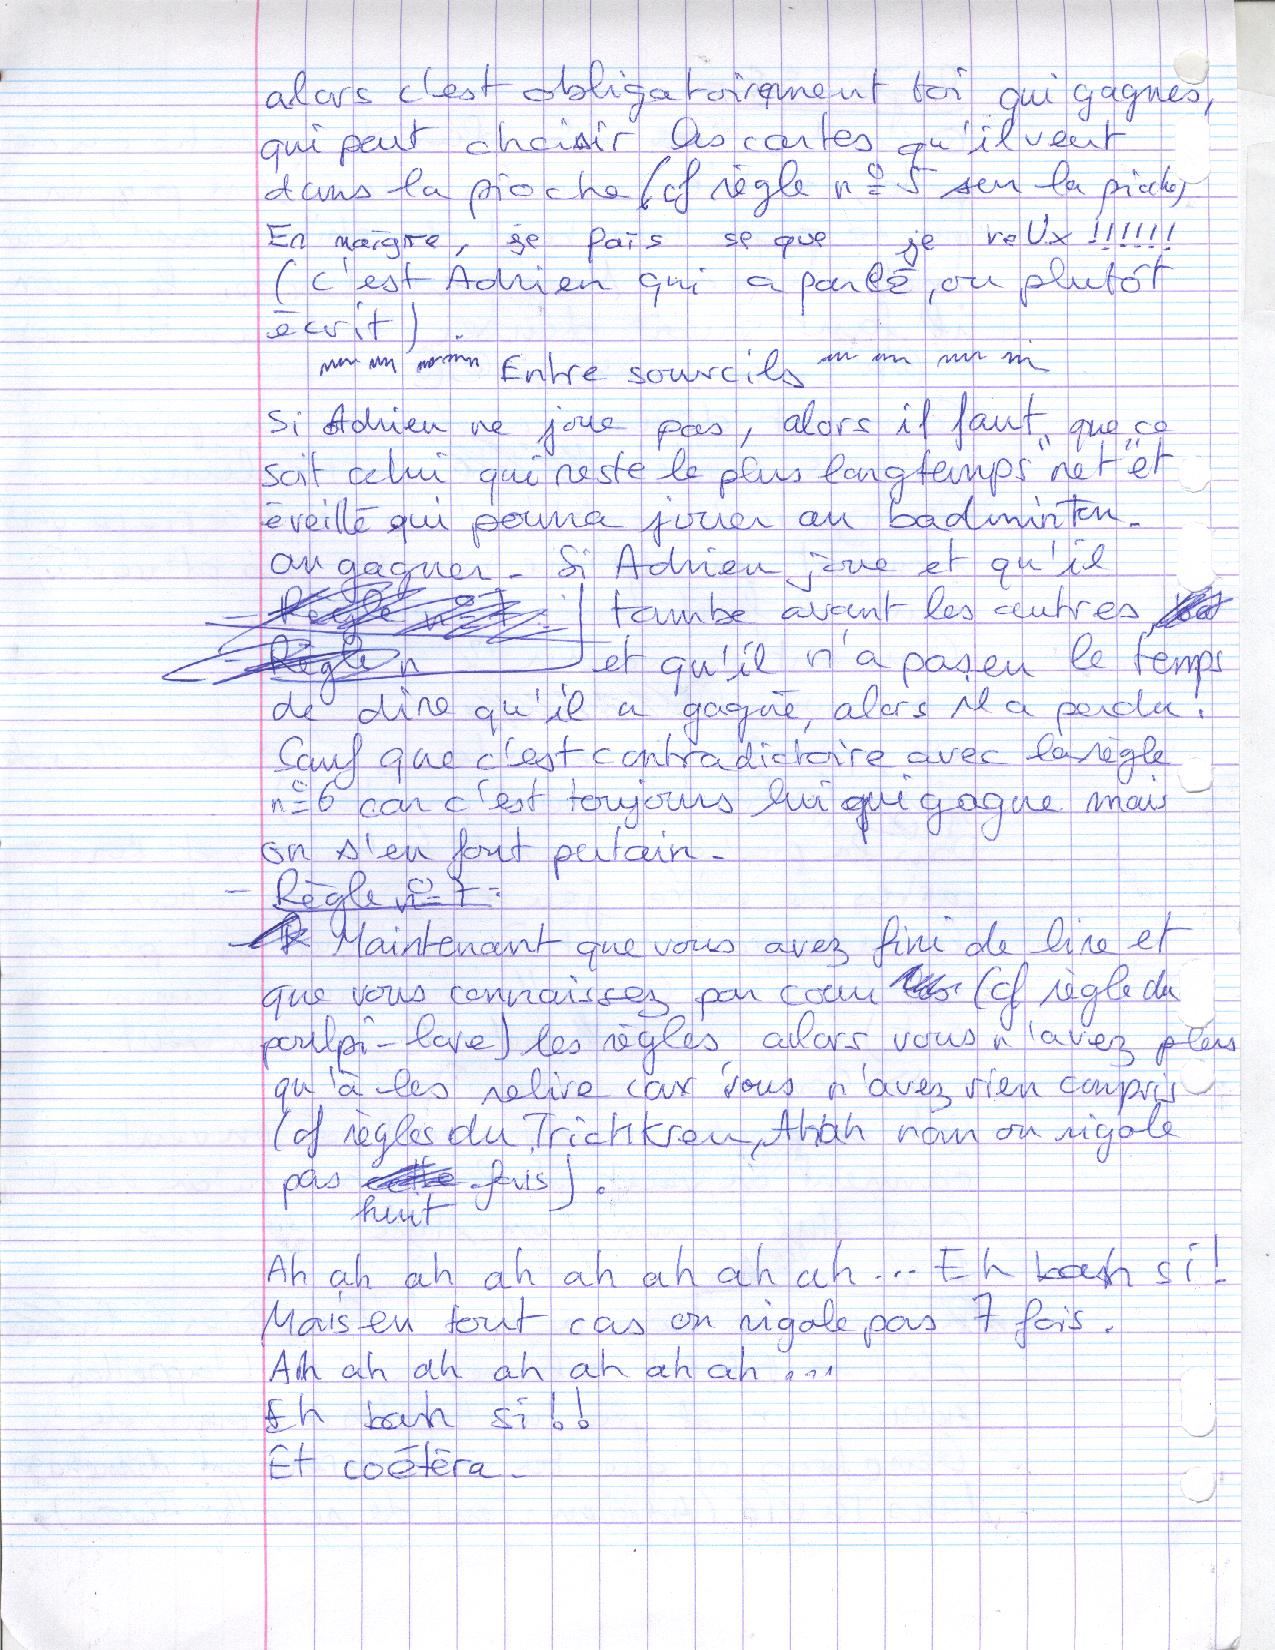 alors c'est obligatoirement toi qui gagnes,
qui peut choisir les cartes qu'il veut
dans la pioche (cf règle n°5 sur la pioche)
En maigre, je fais se que je veUx !!!!!!
(c'est Adrien qui a parlé, ou plutôt
écrit).
Entre sourcils
Si Adrien ne joue pas, alors il faut que ce
soit celui qui reste le plus longtemps "net" et
éveillé qui pourra jouer au badminton.
ou gagner. Si Adrien joue et qu'il
Règle n°7 : tombe avant les autres,
Règle n et qu'il n'a pas eu le temps
de dire qu'il a gagné, alors il a perdu !
Sauf que c'est contradictoire avec la règle
n°6 car c'est toujours lui qui gagne mais
on s'en fout putain.
- Règle n°7 :
Maintenant que vous avez fini de lire et
que vous connaissez par coeur (cf règle du
poulpi-love) les règles, alors vous n'avez plus
qu'à les relire car vous n'avez rien compris
(cf règles du Trichkreu, Ahah non on rigole
pas cette fois).
huit
Ah ah ah ah ah ah ah ah... Eh bah si !
Mais en tout cas on rigole pas 7 fois.
Ah ah ah ah ah ah ah...
Eh bah si !!
Et coétéra.